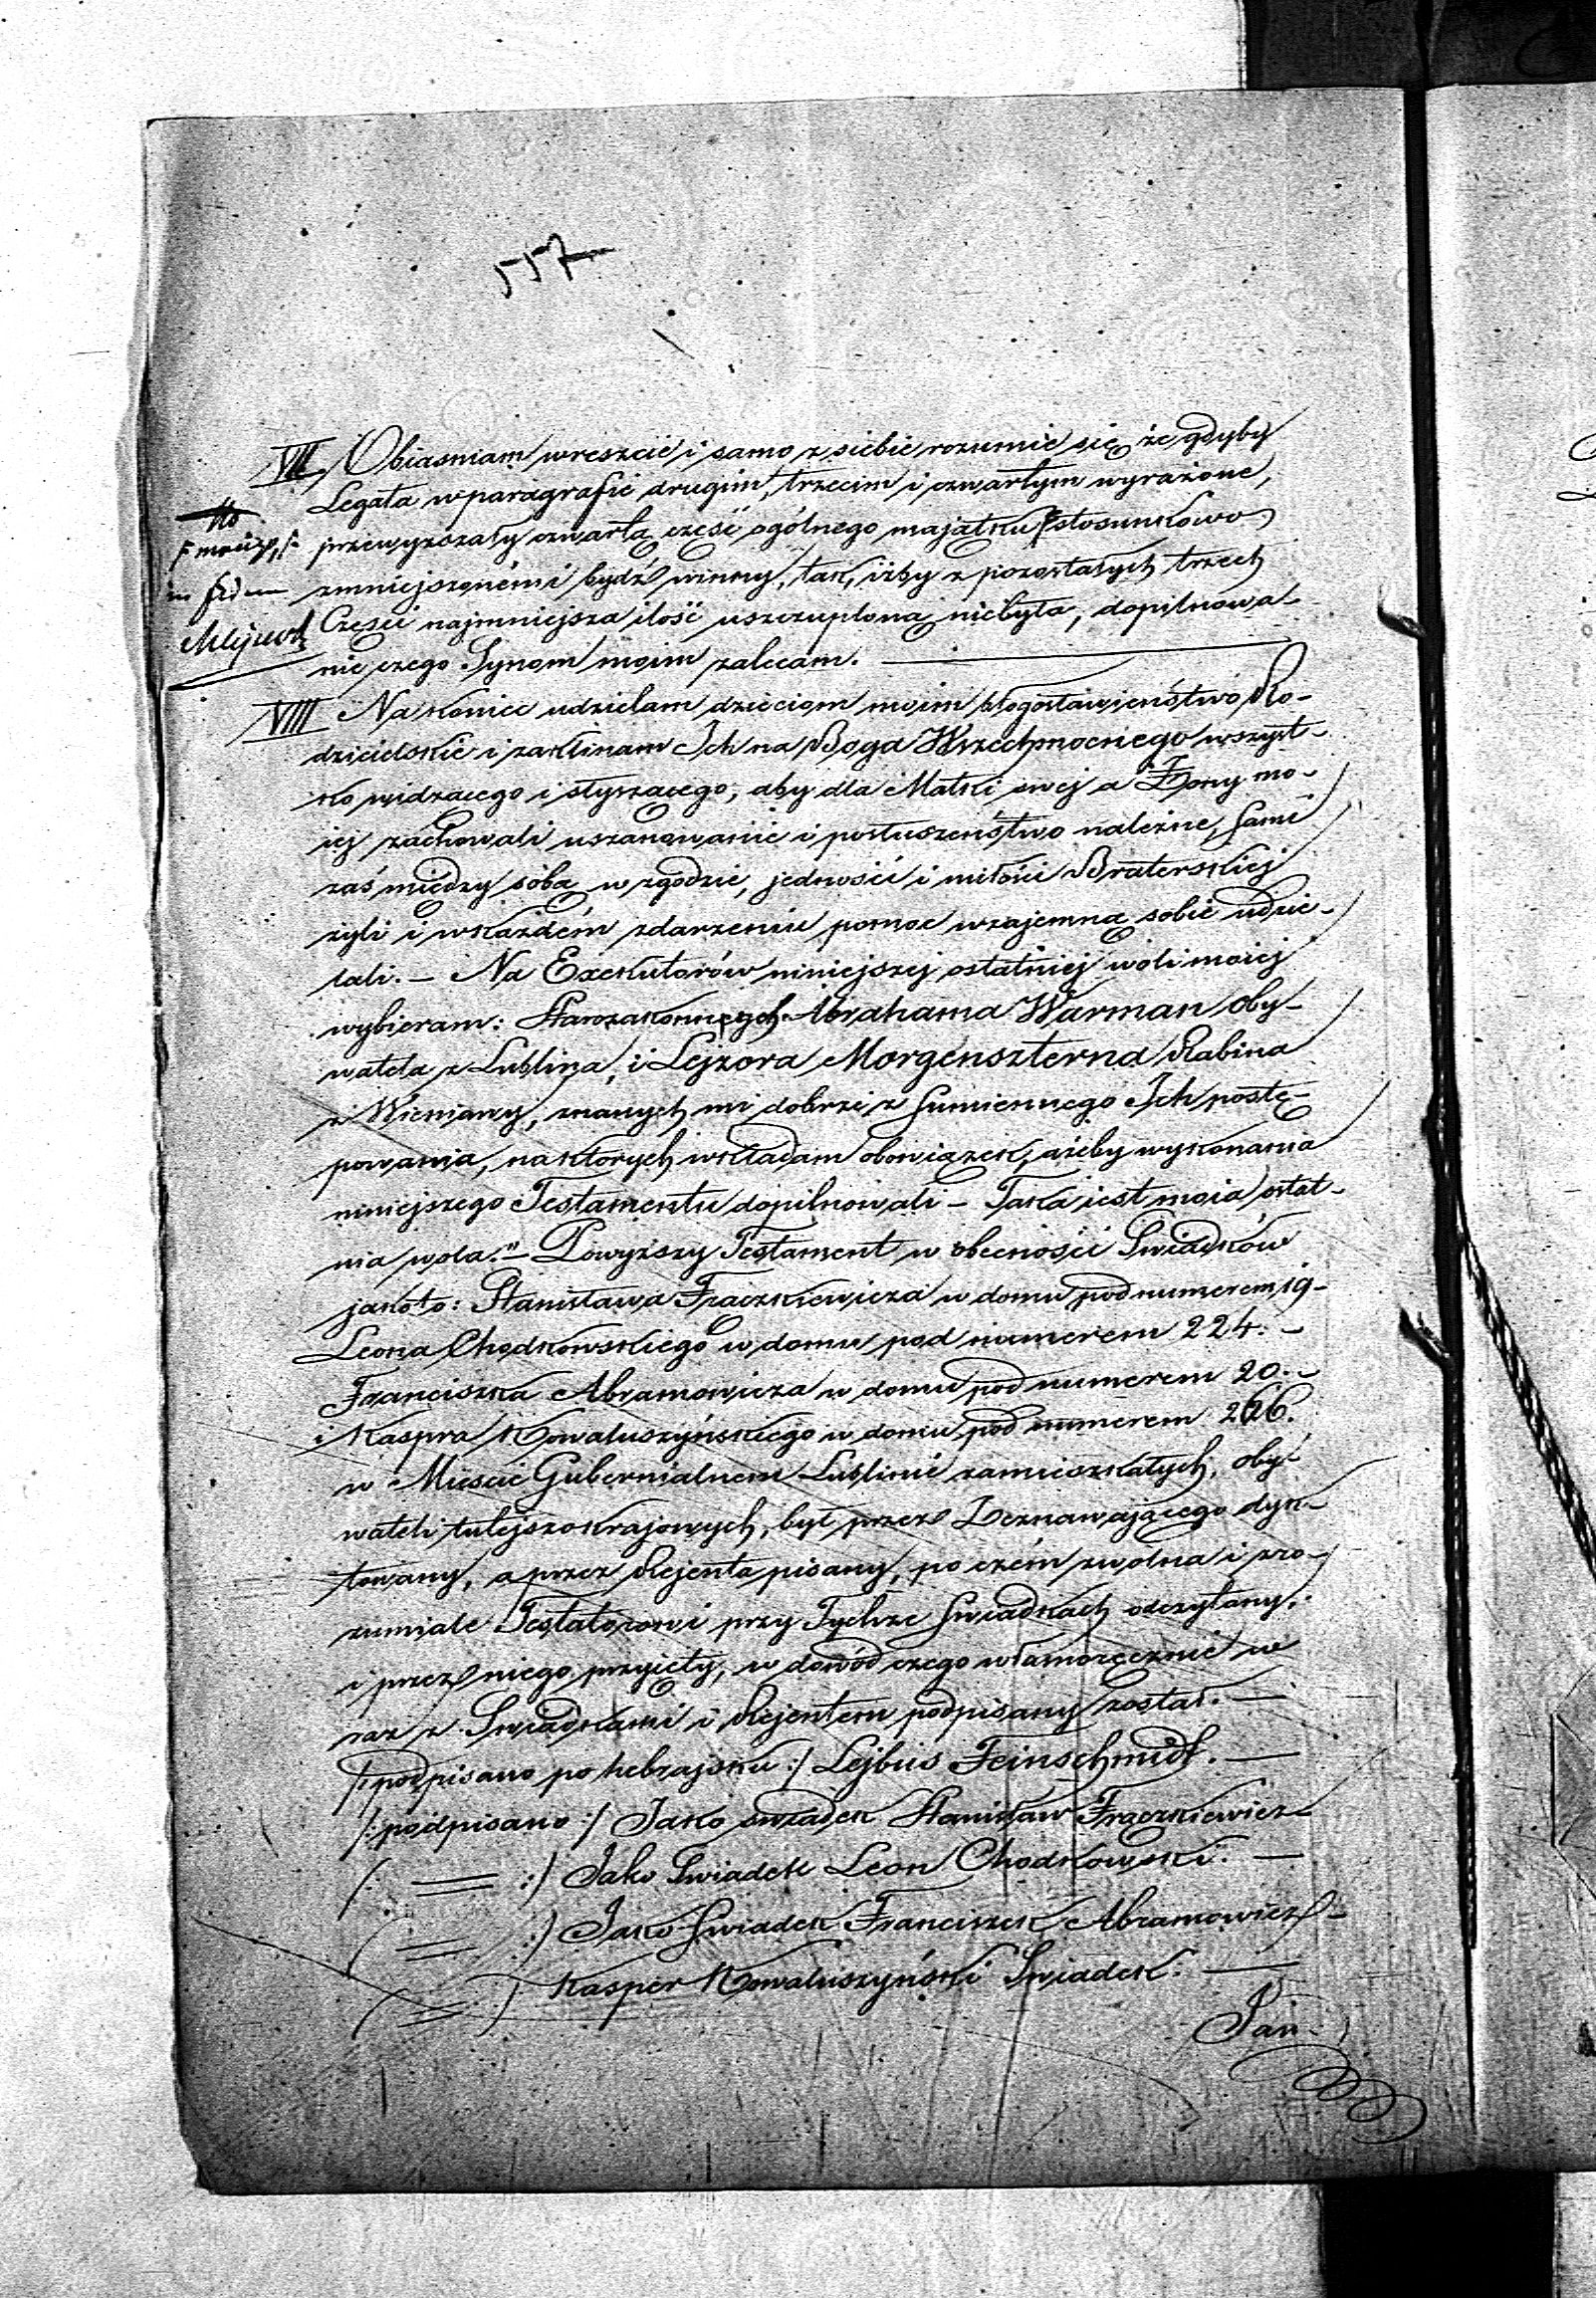 557
VII Obiasniam wreszcie i samo z siebie rozumie się że gdyby
Legata w paragrafie drugim, trzecim i czwartym wyrażone,
przewyzszały czwartą część ogólnego majątku stosunkowo
zmniejszonémi bydź winny, tak, iżby z pozostałych trzech
in fidem
Części najmniejsza ilość uszczuploną niebyła, dopilnowa-
nie czego Synom moim zalecam. —
VIII Nakoniec udzielam dzieciom moim błogosławieństwo Ro-
dzicielskie i zaklinam Ich na Boga Wszechmocnego wszyst-
ko widzącego i słyszącego, aby dla Matki swej a Żony mo-
iej zachowali uszanowanie i posłuszeństwo należne, sami
zaś między sobą w zgodzie, jedności i miłości Braterskiej
żyli i w każdém zdarzeniu pomoc wzajemną sobie udzie-
lali. — Na Exekutorów niniejszej ostatniej woli moiej
wybieram: Starozakonnych Abrahama Warman oby-
watela z Lublina, i Lejzora Morgenszterna Rabina
z Wieniawy, znanych mi dobrze z sumiennego Ich postę-
powania, na których wkładam obowiązek, ażeby wykonania
niniejszego Testamentu dopilnowali — Taka iest moia ostat-
nia wola." — Powyższy Testament w obecności Swiadków
jakoto: Stanisława Frączkiewicza w domu pod numerem 19 -
Leona Chodkowskiego w domu pod numerem 224. -
Franciszka Abramowicza w domu pod numerem 20. -
i Kaspra Kowaluszyńskiego w domu pod numerem 266.
w Miescie Gubernialnem Lublinie zamieszkałych, oby-
wateli tutejszokrajowych, był przez Zeznawającego dyk-
towany, a przez Rejenta pisany, po czém zwolna i zro-
zumiale Testatorowi przy Tychże Swiadkach odczytany,
i przez niego przyięty, w dowód czego własnoręcznie w
raz z Swiadkami i Rejentem podpisany został. —
/: podpisano po hebrajsku :/ Lejbus Feinschmidt. —
/: podpisano :/ Jako swiadek Stanisław Frączkiewicz
/: = :/ Jako Swiadek Leon Chodkowski. —
/: = :/ Jako Swiadek Franciszek Abramowicz -
/: = :/ Kasper Kowaluszyński Swiadek. —
Jan